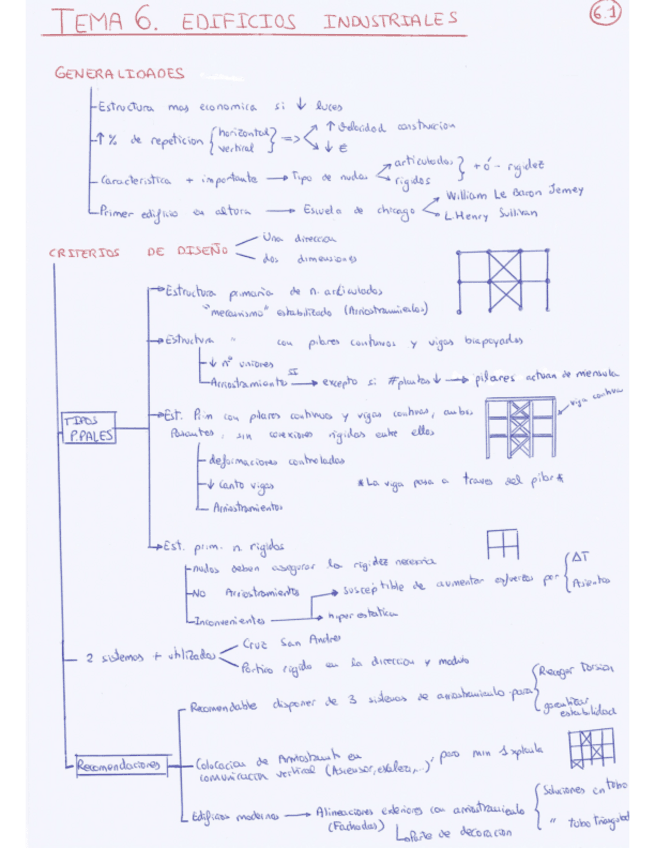 TEMA 6. EDIFICIOS INDUSTRIALES
6.1
GENERALIDADES
Estructura mas economica si ↓ luces
↑ % de repeticion { horizontal vertical } => ↑ velocidad construccion
↓ €
Caracteristica + importante → Tipo de nudos articulados } + ó - rigidez
rigidos
Primer edificio en altura → Escuela de chicago William Le Baron Jenney
L. Henry Sullivan
CRITERIOS DE DISEÑO Una direccion
dos dimensiones
Estructura primaria de n. articulados
"mecanismo" estabilizado (Arriostramientos)
Estructura " con pilares continuos y vigas biapoyadas
↓ nº uniones
Arriostramiento SI → excepto si #plantas ↓ → pilares actuan de mensula
TIPOS P.PALES
Est. Prin con pilares continuos y vigas continuas, ambas
viga continua
Pasantes, sin conexiones rigidas entre ellos
deformaciones controladas
↓ Canto vigas
* La viga pasa a traves del pilar *
Arriostramientos
Est. prim. n. rigidos
nudos deben asegurar la rigidez necesaria
NO Arriostramientos
susceptible de aumentar esfuerzos por { ΔT
Asientos
Inconveniente → hiperestatica
2 sistemas + utilizados Cruz San Andres
Portico rigido en la direccion y modulo
Recomendable disponer de 3 sistemas de arriostramiento para { Recoger Torsion
garantizar estabilidad
Recomendaciones
Colocacion de Arriostramt en comunicacion vertical (Ascensor, escalera,...), para min 1 x planta
Edificios modernos → Alineaciones exteriores con arriostramiento { Soluciones en tubo
(Fachadas)
" tubo triangulad
de decoracion